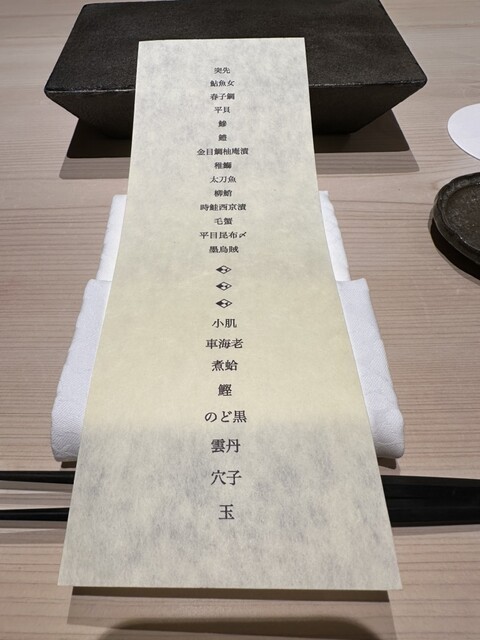 突先
鮎魚女
春子鯛
平貝
鯵
鱧
金目鯛柚庵漬
稚鰤
太刀魚
柳鮹
時鮭西京漬
毛蟹
平目昆布〆
墨烏賊
小肌
車海老
煮蛤
鰹
のど黒
雲丹
穴子
玉